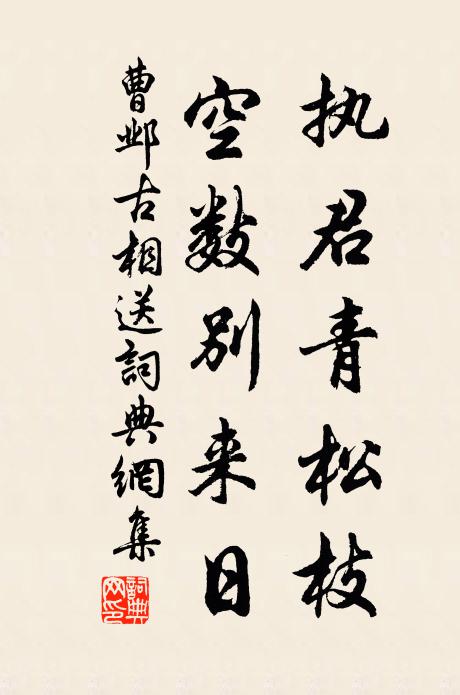 执君青松枝
空数别来日
曹邺古相送詞典網集
詞典
网印